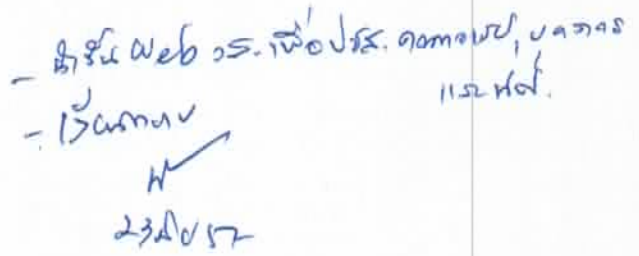 - นำขึ้น web วร. เพื่อ ปชส. คณาจารย์, บุคลากร
และ นศ.
- เวียนทราบ
23